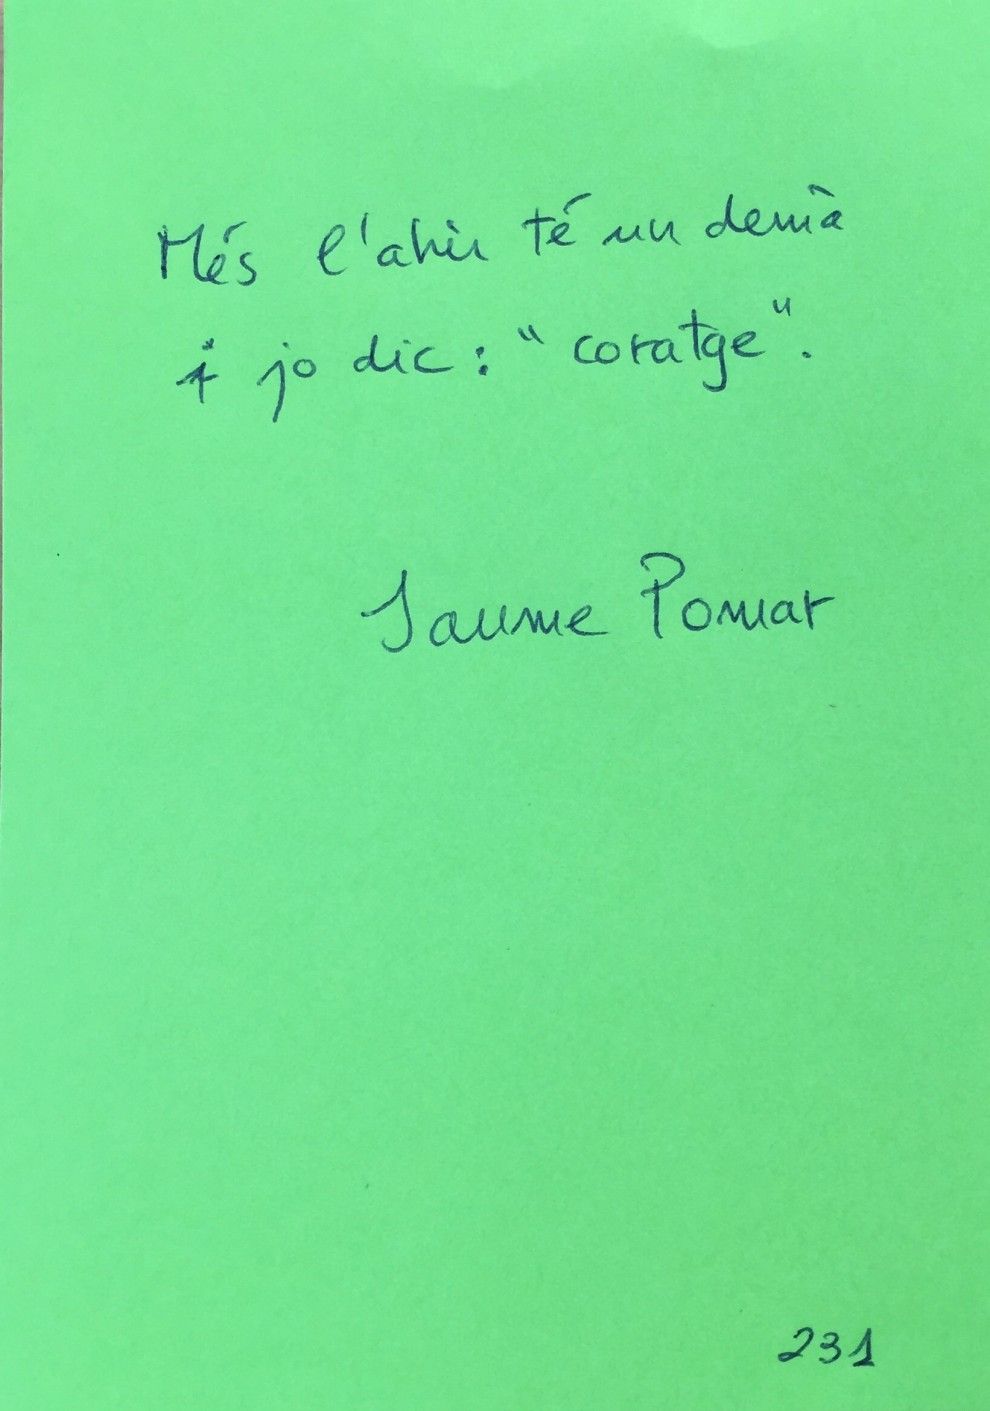 Més l'ahir té un demà
i jo dic: "coratge".
Jaume Pomar
231